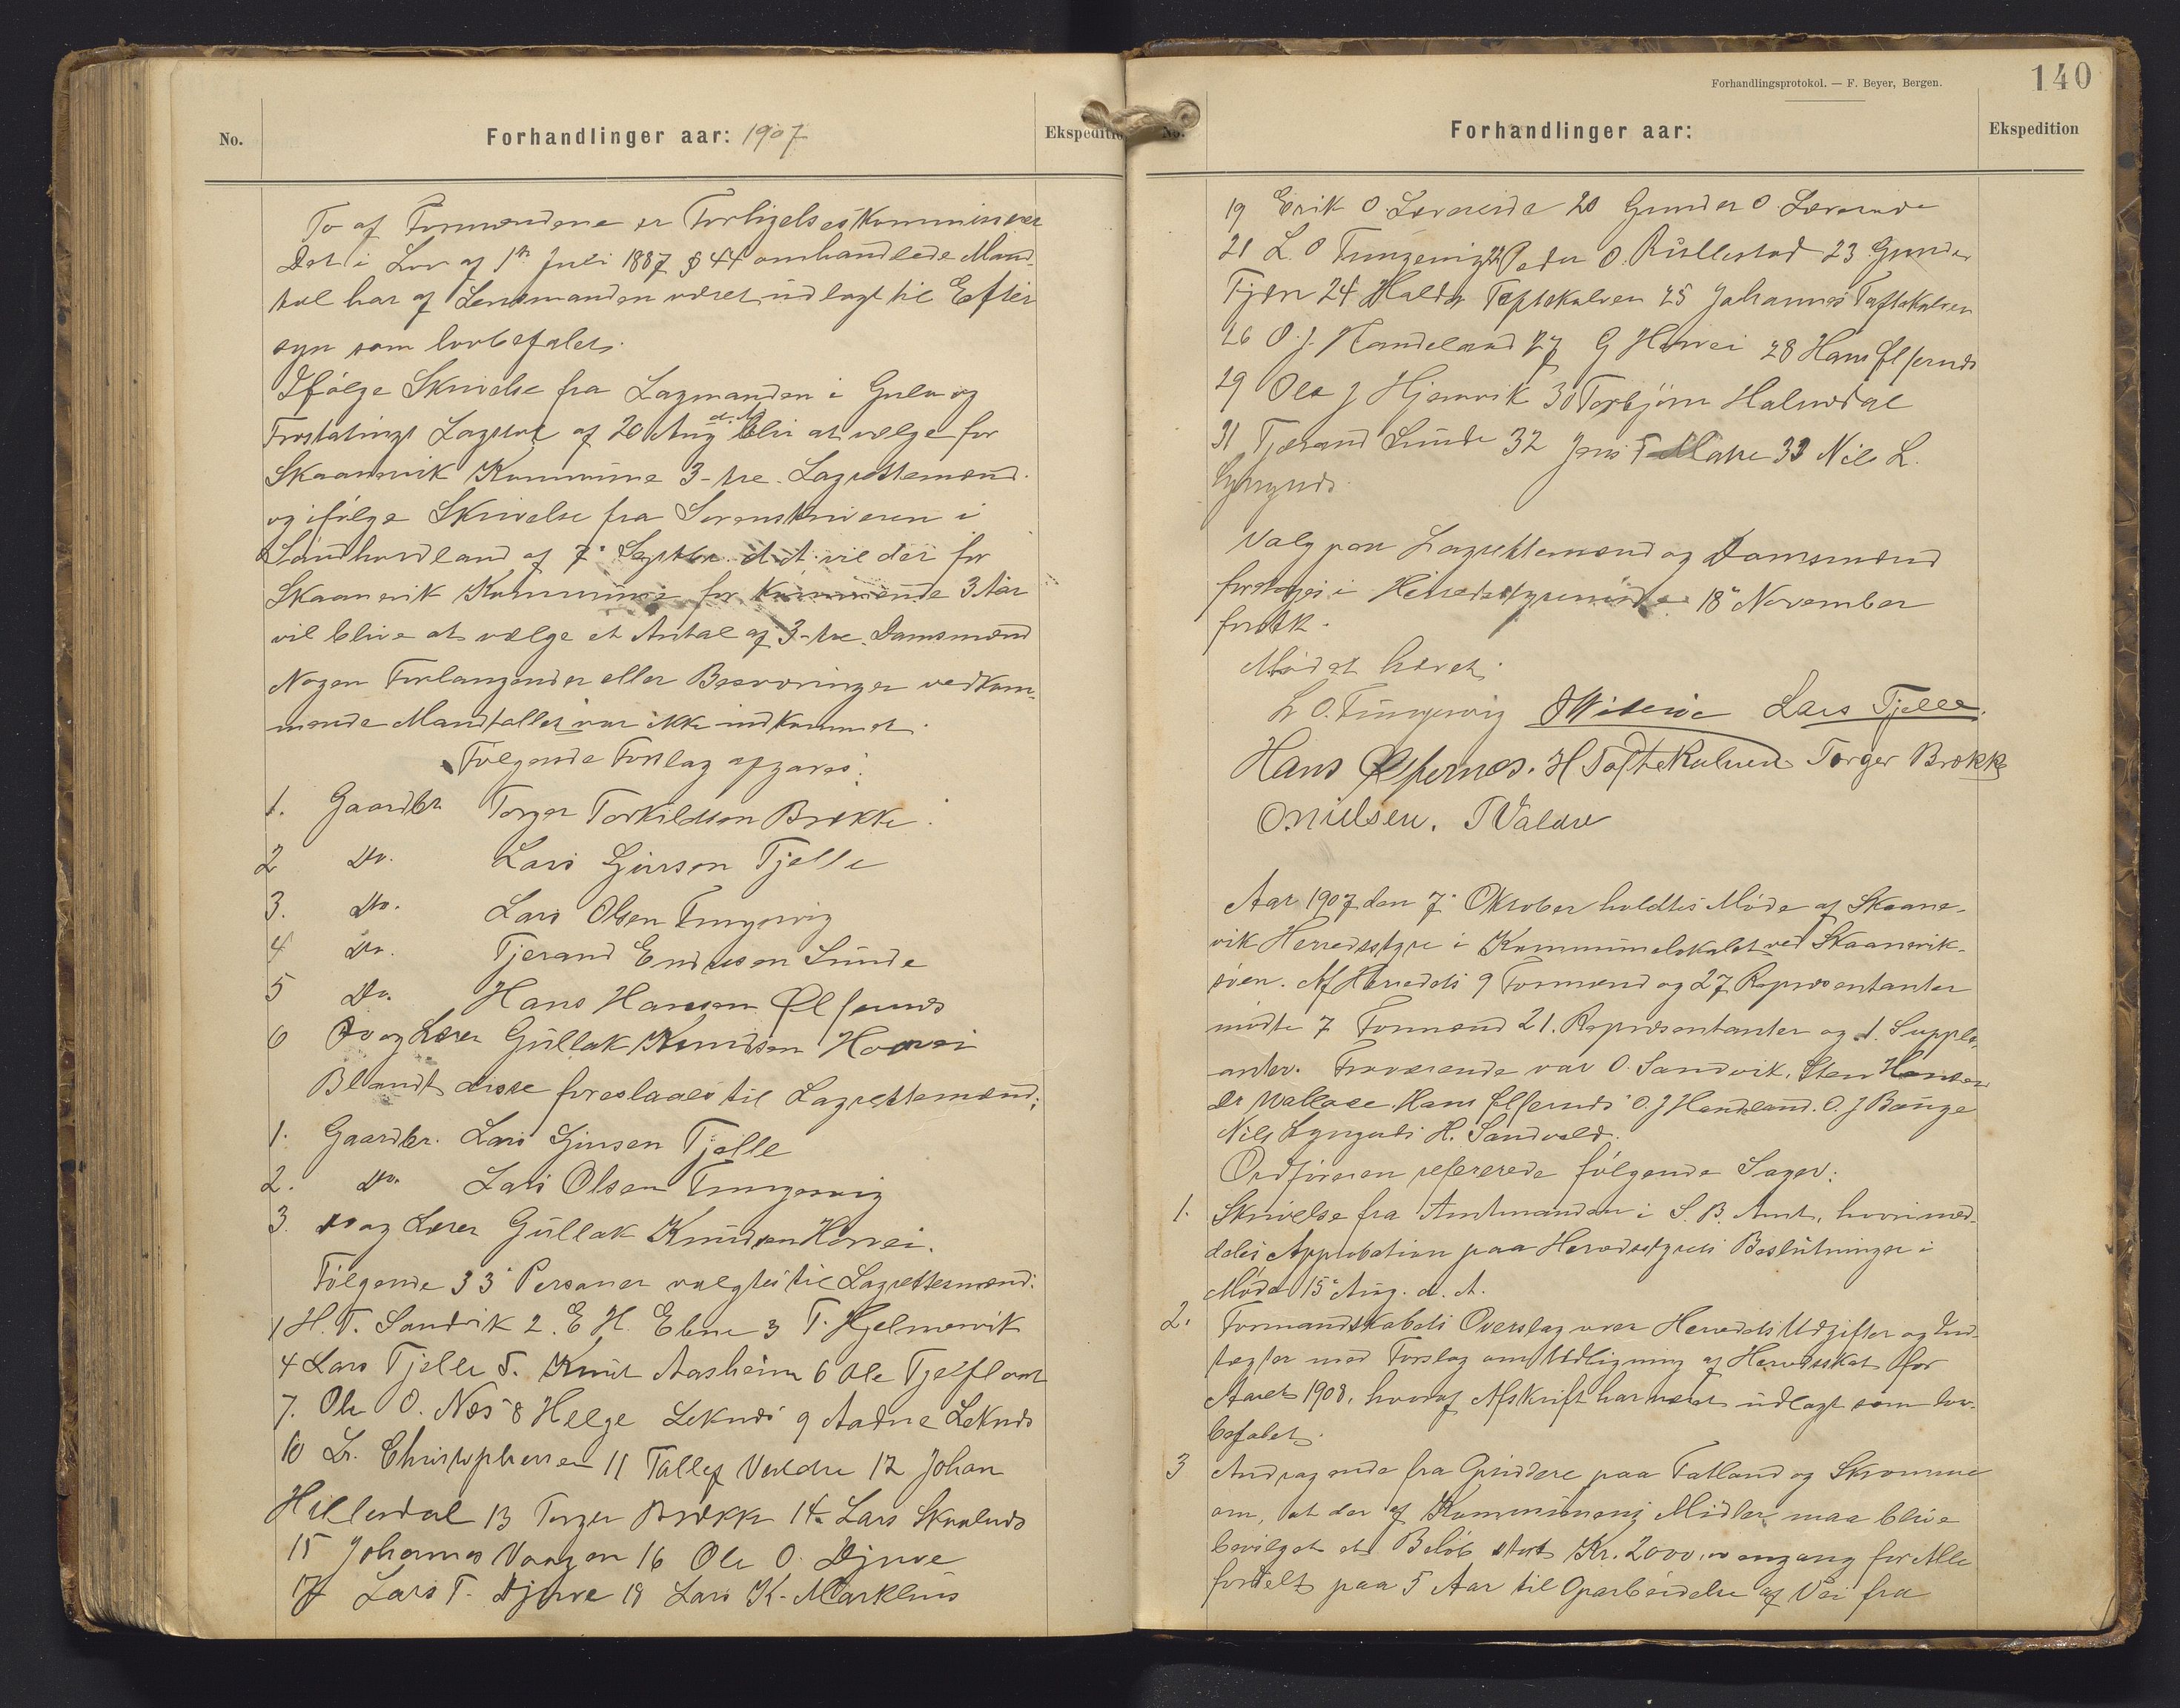 No.
Forhandlinger aar: 1907
To af Formændene er Forligelseskommissærer
Det i Lov af 1ste Juli 1887 § 44 omhandlede Mand-
tal har af Lensmanden været udlagt til Efter
syn som lovbefalet.
Ifølge Skrivelse fra Lagmanden i Gula og
Frostatings Lagstol af 20 Aug d. A. bliv at vælge for
Skaanevik Kommune 3-tre- Lagrettemænd.
og ifølge Skrivelse fra Sorenskriveren i
Søndhordland af 7de Septbr. d. A. vil der for
Skaanevik Kommune for kommende 3 Aar
vil blive at vælge et Antal af 3-tre- Domsmænd
Nogen Forlangender eller Besværinger vedkom-
mende Mandtallet var ikke indkommet.
Følgende Forslag afgaves:
1. Gaardbr Torger Torkildsen Brekke.
2 Do. Lars Giursen Tjelle
3. Do. Lars Olsen Tungesvig
4 Do. Tjerand Endresen Sunde
5 Do. Hans Hansen Ølfernes
6 Do og Lærer Gullak Knudsen Horvei
Blandt disse foreslaaes til Lagrettemænd;
1. Gaardbr. Lars Giursen Tjelle
2. Do. Lars Olsen Tungesvig
3. Do og Lærer Gullak Knudsen Horvei.
Følgende 33 Personer valgtes til Lagrettemænd:
1 H. T. Sandvik 2. E H. Ebne 3 T. Hjelmervik
4 Lars Tjelle 5. Knut Aasheim 6 Ole Tjelflaat
7. Ole O. Næs 8 Helge Leknes 9 Aadne Leknes
10 Chr. Christophersen 11 Tallef Valdre 12 Johan
Hillesdal 13 Torger Brekke 14 Lars Skaalnes
15 Johannes Vaagen 16 Ole O. Djuve
17 Lars T. Djuve 18 Lars K. Markhus
Forhandlingsprotokol. — F. Beyer, Bergen.
140
No.
Forhandlinger aar:
Ekspedition
19 Erik O. Løvereide 20 Gunder O. Løvereide
21 L. O Tungesvig 22 Peder O. Rullestad 23 Gunder
Fjæn 24 Haldor Toftekalven 25 Johannes Toftekalven
26 O. J. Handeland 27 G Horvei 28 Hans Ølfernes
29 Ole J Hjemvik 30 Torbjørn Halvedal
31 Tjerand Sunde 32 Jens T. Matre 33 Nils L.
Lyngnes
Valg paa Lagrettemænd og Domsmænd
foretages i Herredsstyremøde 18de November
førstk.
Mødet hævet.
L O. Tungesvig Lars Tjelle.
Hans Ølfernes. H Toftekalven Torger Brekke
O Nielsen. T Valdre
Aar 1907 den 7de Oktober holdtes Møde af Skaane-
vik Herredsstyre i Kommunelokalet ved Skaanevik-
søen. Af Herredets 9 Formænd og 27 Repræsentanter
mødte 7 Formænd 21. Repræsentanter og 1. Supple-
anter. Fraværende var O. Sandvik, Sten Hansen
Dr Wallace Hans Ølfernes O. J Handeland. O. J Bauge
Nils Lyngnes H. Sandvold.
Ordføreren refererede følgende Sager:
1. Skrivelse fra Amtmanden i S. B. Amt, hvori med-
deles Approbation paa Herredsstyrets Beslutninger i
Møde 15de Aug. d. A.
2. Formandskabets Overslag over Herredets Udgifter og Ind-
tægter med Forslag om Udligning af Herredsskat for
Aaret 1908, hvoraf Afskrift har været udlagt som lov-
befalet.
3 Andragende fra Opsiddere paa Fatland og Skromme
om, at der af Kommunens Midler maa blive
bevilget et Beløb stort Kr. 2000.00 engang for Alle
fordelt paa 5 Aar til Oparbeidelse af Vei fra